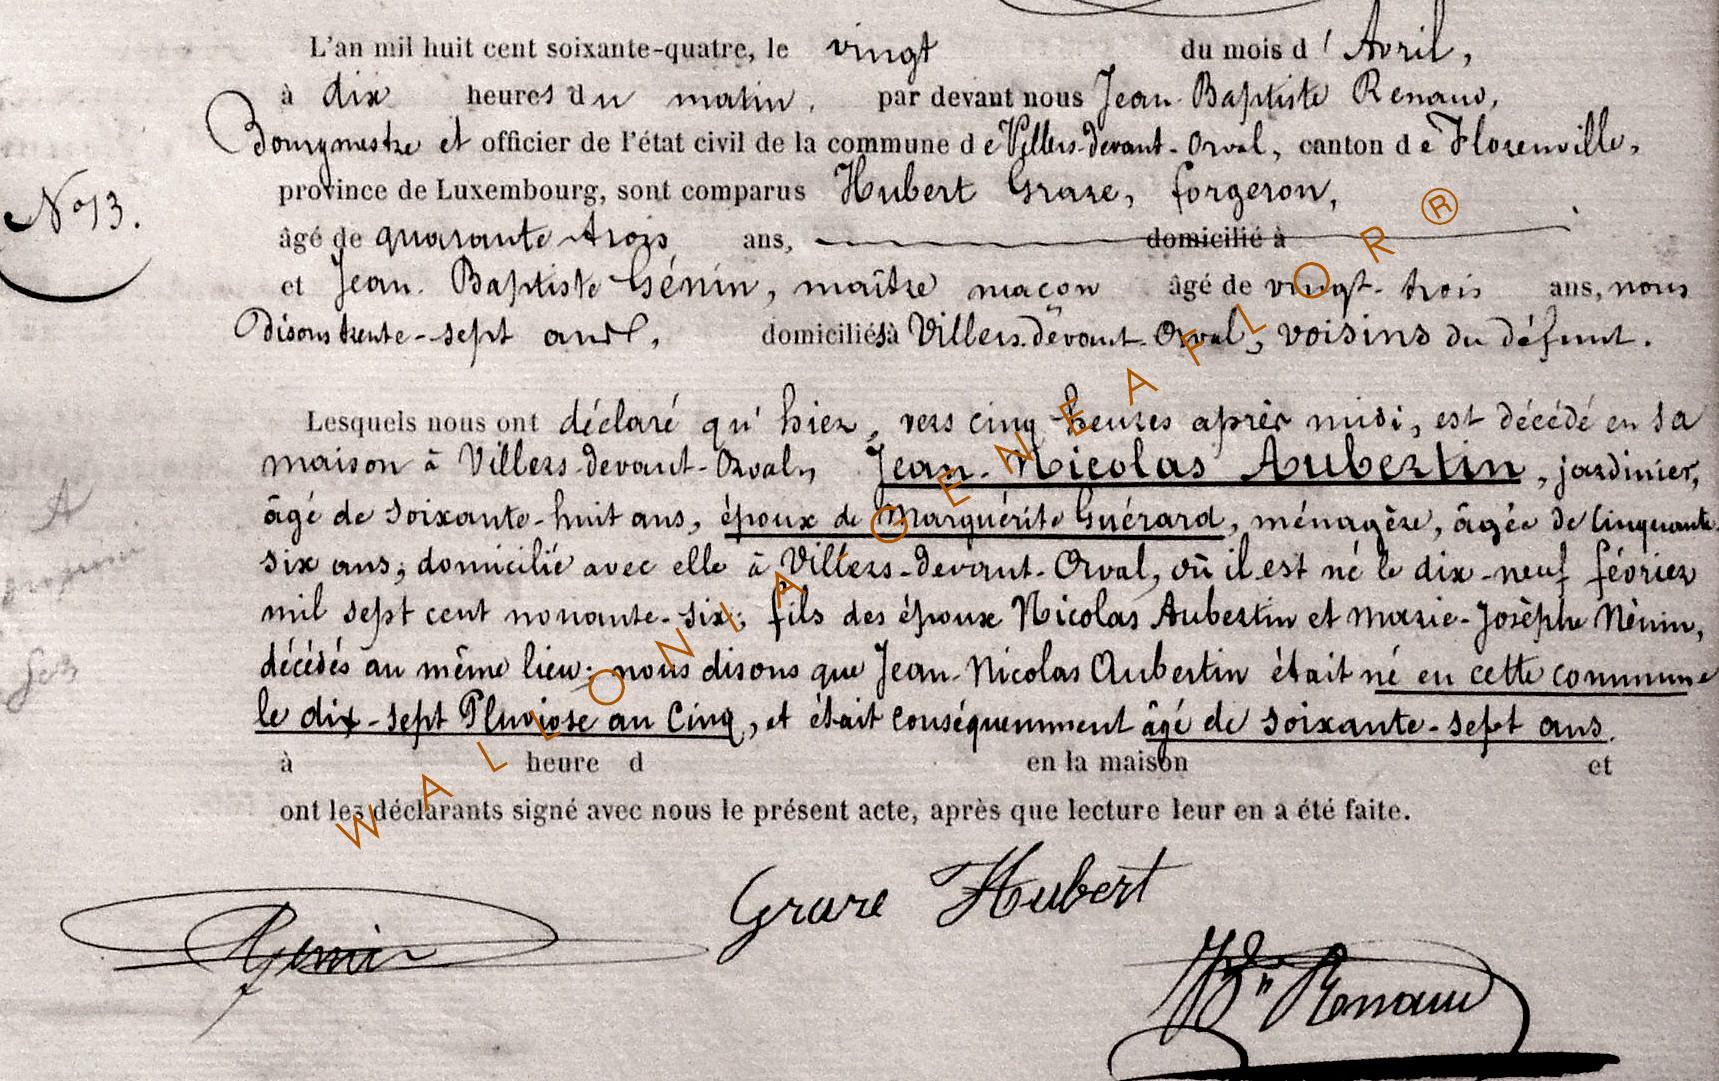 L'an mil huit cent soixante-quatre, le vingt du mois d' Avril,
à dix heures du matin, par devant nous Jean-Baptiste Renauld,
Bourgmestre et officier de l'état civil de la commune de Villers-devant-Orval, canton de Florenville,
province de Luxembourg, sont comparus Hubert Grare, forgeron,
N° 13.
âgé de quarante-trois ans, domicilié à
et Jean-Baptiste Génin, maître maçon âgé de vingt-trois ans, nous
Disons trente-sept ans, domiciliés à Villers-devant-Orval, voisins du défunt.
Lesquels nous ont déclaré qu'hier, vers cinq heures après midi, est décédé en sa
maison à Villers-devant-Orval, Jean-Nicolas Aubertin, jardinier,
âgé de soixante-huit ans, époux de Marguérite Guérard, ménagère, âgée de cinquante-
six ans, domicilié avec elle à Villers-devant-Orval, où il est né le dix-neuf février
mil sept cent nonante-six; fils des époux Nicolas Aubertin et Marie-Josèphe Nénin,
décédés au même lieu; nous disons que Jean-Nicolas Aubertin était né en cette commune
le dix-sept Pluviose an Cinq, et était conséquemment âgé de soixante-sept ans.
à heure d en la maison et
ont les déclarants signé avec nous le présent acte, après que lecture leur en a été faite.
Grare Hubert
Génin
JBte Renauld
WALLONIA-GENEAFLOR®